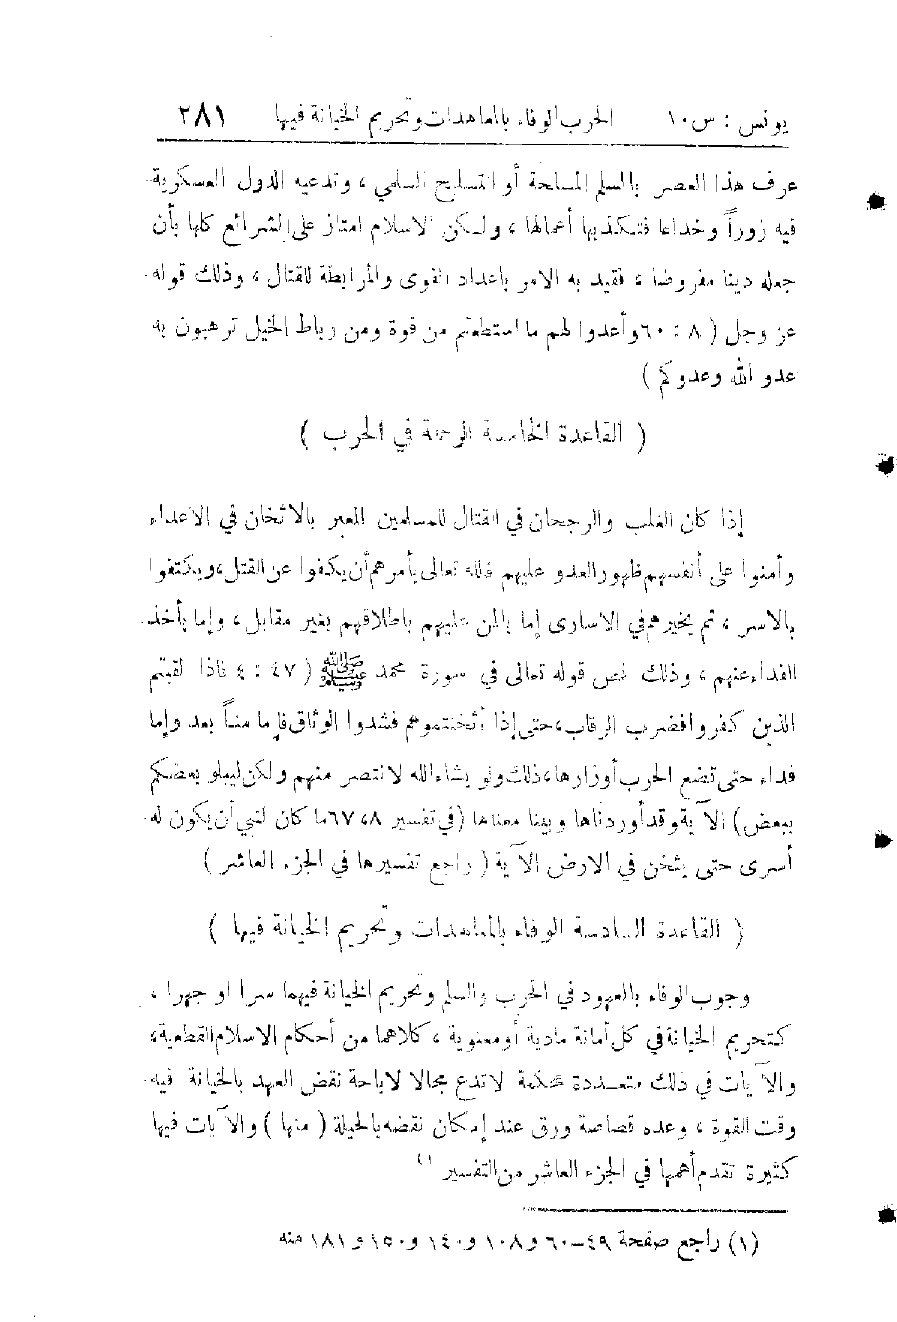 يونس : س ١٠ الحرب الوفاء بالمعاهدات وتحريم الخيانة فيها ٢٨١
عرف هذا العصر بالسلم المسلحة أو التسليح السلمي ، وتدعيه الدول العسكرية
فيه زوراً وخداعا فتكذبها أعمالها ، ولكن الاسلام امتاز على الشرائع كلها بأن
جعله دينا مفروضا ، فقيد به الامر باعداد القوى والمرابطة للقتال ، وذلك قوله
عز وجل ( ٨ : ٦٠ وأعدوا لهم ما استطعتم من قوة ومن رباط الخيل ترهبون به
عدو الله وعدوكم )
( القاعدة الخامسة الرحمة في الحرب )
إذا كان الغلب والرجحان في القتال للمسلمين المعبر بالاثخان في الاعداء
وأمنوا على أنفسهم ظهور العدو عليهم فالله تعالى يأمرهم أن يكفوا عن القتل ، ويكتفوا
بالاسر ، ثم يخيرهم في الاسارى إما بالمن عليهم باطلاقهم بغير مقابل ، وإما بأخذ
الفداء عنهم ، وذلك نص قوله تعالى في سورة محمد ﷺ ( ٤٧ : ٤ فاذا لقيتم
الذين كفروا فضرب الرقاب ، حتى إذا أثخنتموهم فشدوا الوثاق فإما مناً بعد وإما
فداء حتى تضع الحرب أوزارها ، ذلك ولو يشاء الله لا نتصر منهم ولكن ليبلو بعضكم
ببعض) الآية وقد أوردناها وبينا معناها (في تفسير ٨ ، ٦٧ ما كان لنبي أن يكون له
أسرى حتى يثخن في الارض الآية ( راجع تفسيرها في الجزء العاشر )
( القاعدة السادسة الوفاء بالمعاهدات وتحريم الخيانة فيها )
وجوب الوفاء بالعهود في الحرب والسلم وتحريم الخيانة فيهما سرا او جهرا ،
كتحريم الخيانة في كل أمانة مادية أو معنوية ، كلاهما من أحكام الاسلام القطعية ،
والآيات في ذلك متعددة محكمة لا تدع مجالا لاباحة نقض العهد بالخيانة فيه
وقت القوة ، وعده قصاصة ورق عند إمكان نقضه بالحيلة ( منها ) والآيات فيها
كثيرة تقدم أهمها في الجزء العاشر من التفسير (١
(١) راجع صفحة ٤٩-٦٠ و ١٠٨ و ١٤٠ و ١٥٠ و ١٨١ منه